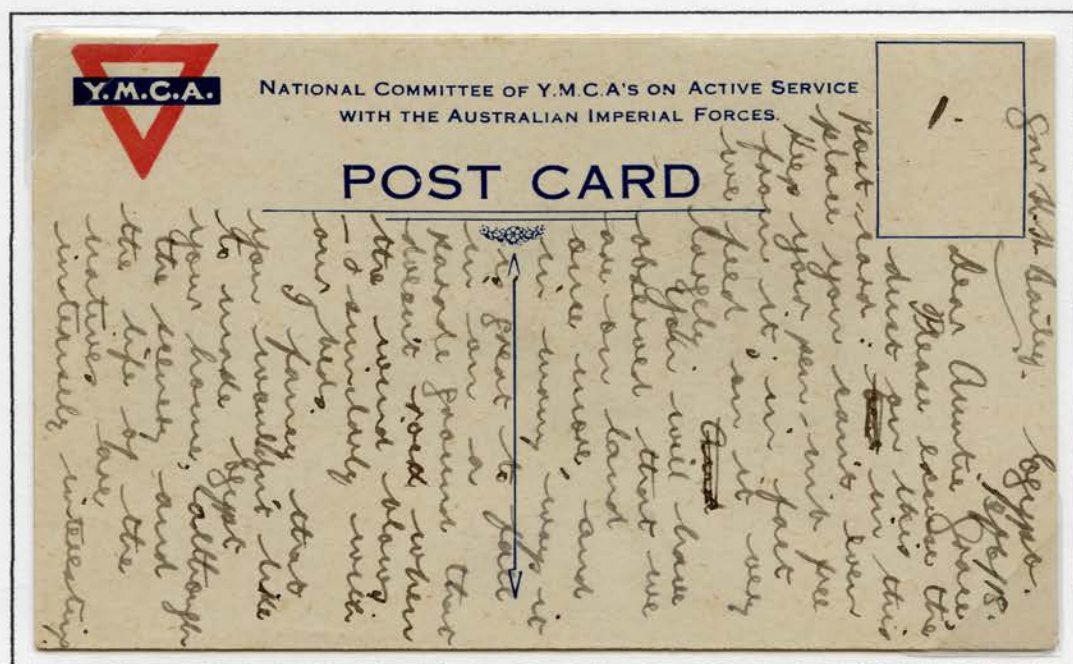 Y.M.C.A.
NATIONAL COMMITTEE OF Y.M.C.A'S ON ACTIVE SERVICE
WITH THE AUSTRALIAN IMPERIAL FORCES.
POST CARD
1.
H.H. Bailey. Egypt.
Dear Auntie Grace
Please excuse the
dust on this
post-card: in this
place you can't even
keep your pen-nib free
from it; in fact
we feed on it very
largely. And
You will have
observed that we
are on land
once more, and
in many ways it
is great to fall
in on a
parade ground that
doesn't rock when
the wind blows
- & similarly with
our beds.
I fancy that
you wouldn't like
to make Egypt
your home, although
the scenery and
the life of the
natives
intensely interesting